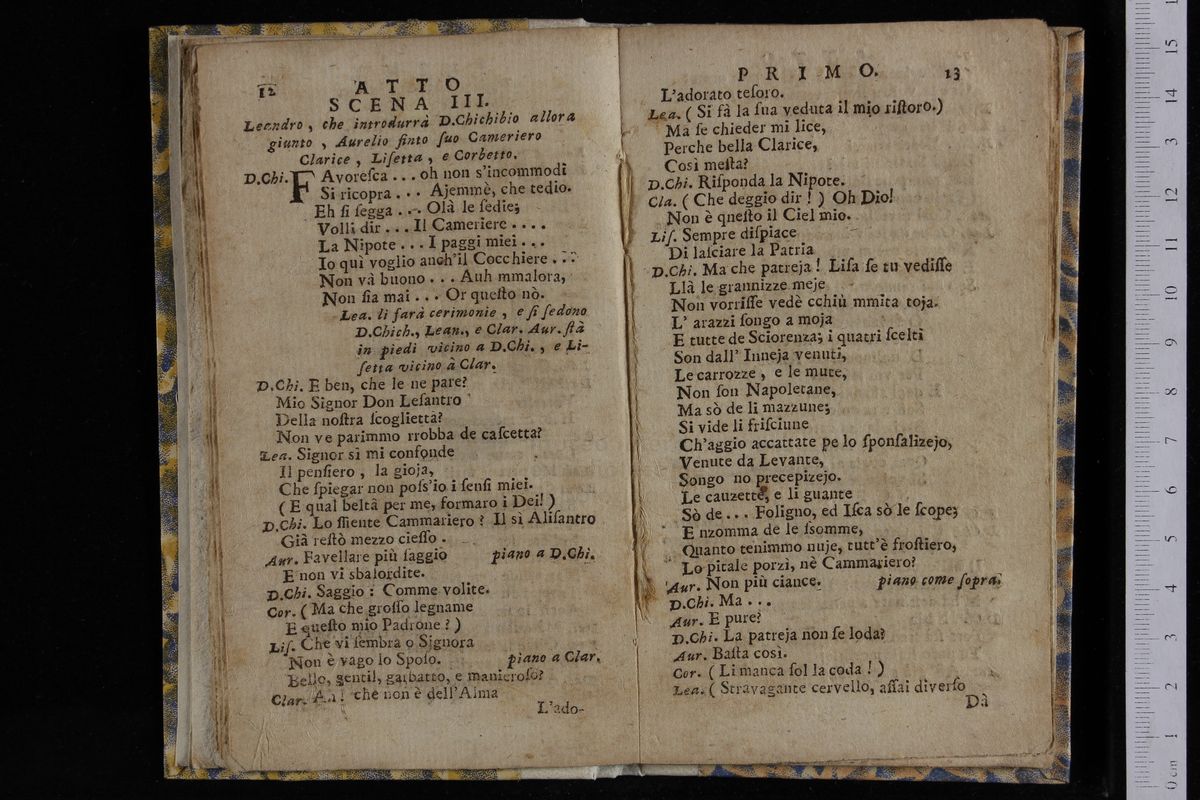 12 ATTO
SCENA III.
Leandro , che introdurrà D.Chichibio allora
giunto , Aurelio finto ſuo Cameriero
Clarice , Liſetta , e Corbetto.
D.Chi. FAvoreſca . . . oh non s'incommodi
Si ricopra . . . Ajemmè, che tedio.
Eh ſi ſegga . . . Olà le ſedie;
Volli dir . . . Il Cameriere . . . .
La Nipote . . . I paggi miei . . .
Io quì voglio anch'il Cocchiere . . .
Non và buono . . . Auh mmalora,
Non ſia mai . . . Or queſto nò.
Lea. li farà cerimonie , e ſi ſedono
D.Chich., Lean., e Clar. Aur. ſtà
in piedi vicino a D.Chi. , e Li-
ſetta vicino à Clar.
D.Chi. E ben, che le ne pare?
Mio Signor Don Leſantro
Della noſtra ſcoglietta?
Non ve parimmo rrobba de caſcetta?
Lea. Signor sì mi confonde
Il penſiero , la gioja,
Che ſpiegar non poſs'io i ſenſi miei.
( E qual beltà per me, formaro i Dei! )
D.Chi. Lo ſſiente Cammariero ? Il sì Aliſantro
Già reſtò mezzo cieſſo .
Aur. Favellare più ſaggio piano a D.Chi.
E non vi sbalordite.
D.Chi. Saggio : Comme volite.
Cor. ( Ma che groſſo legname
E queſto mio Padrone ? )
Liſ. Che vi ſembra o Signora
Non è vago lo Spoſo. piano a Clar.
Bello, gentil, garbatto, e manieroſo?
Clar. Ah! che non è dell'Alma
L'ado-
PRIMO. 13
L'adorato teſoro.
Lea. ( Si fà la ſua veduta il mio riſtoro.)
Ma ſe chieder mi lice,
Perche bella Clarice,
Così meſta?
D.Chi. Riſponda la Nipote.
Cla. ( Che deggio dir ! ) Oh Dio!
Non è qneſto il Ciel mio.
Liſ. Sempre diſpiace
Di laſciare la Patria
D.Chi. Ma che patreja ! Liſa ſe tu vediſſe
Llà le grannizze meje
Non vorriſſe vedè cchiù mmita toja.
L' arazzi ſongo a moja
E tutte de Sciorenza; i quatri ſcelti
Son dall' Inneja venuti,
Le carrozze , e le mute,
Non ſon Napoletane,
Ma sò de li mazzune;
Si vide li friſciune
Ch'aggio accattate pe lo ſponſalizejo,
Venute da Levante,
Songo no precepizejo.
Le cauzette, e li guante
Sò de . . . Foligno, ed Iſca sò le ſcope;
E nzomma de le ſsomme,
Quanto tenimmo nuje, tutt'è froſtiero,
Lo pitale porzì, nè Cammariero?
Aur. Non più ciance. piano come ſopra.
D.Chi. Ma . . .
Aur. E pure?
D.Chi. La patreja non ſe loda?
Aur. Baſta così.
Cor. ( Li manca ſol la coda ! )
Lea. ( Stravagante cervello, aſſai diverſo
Dà